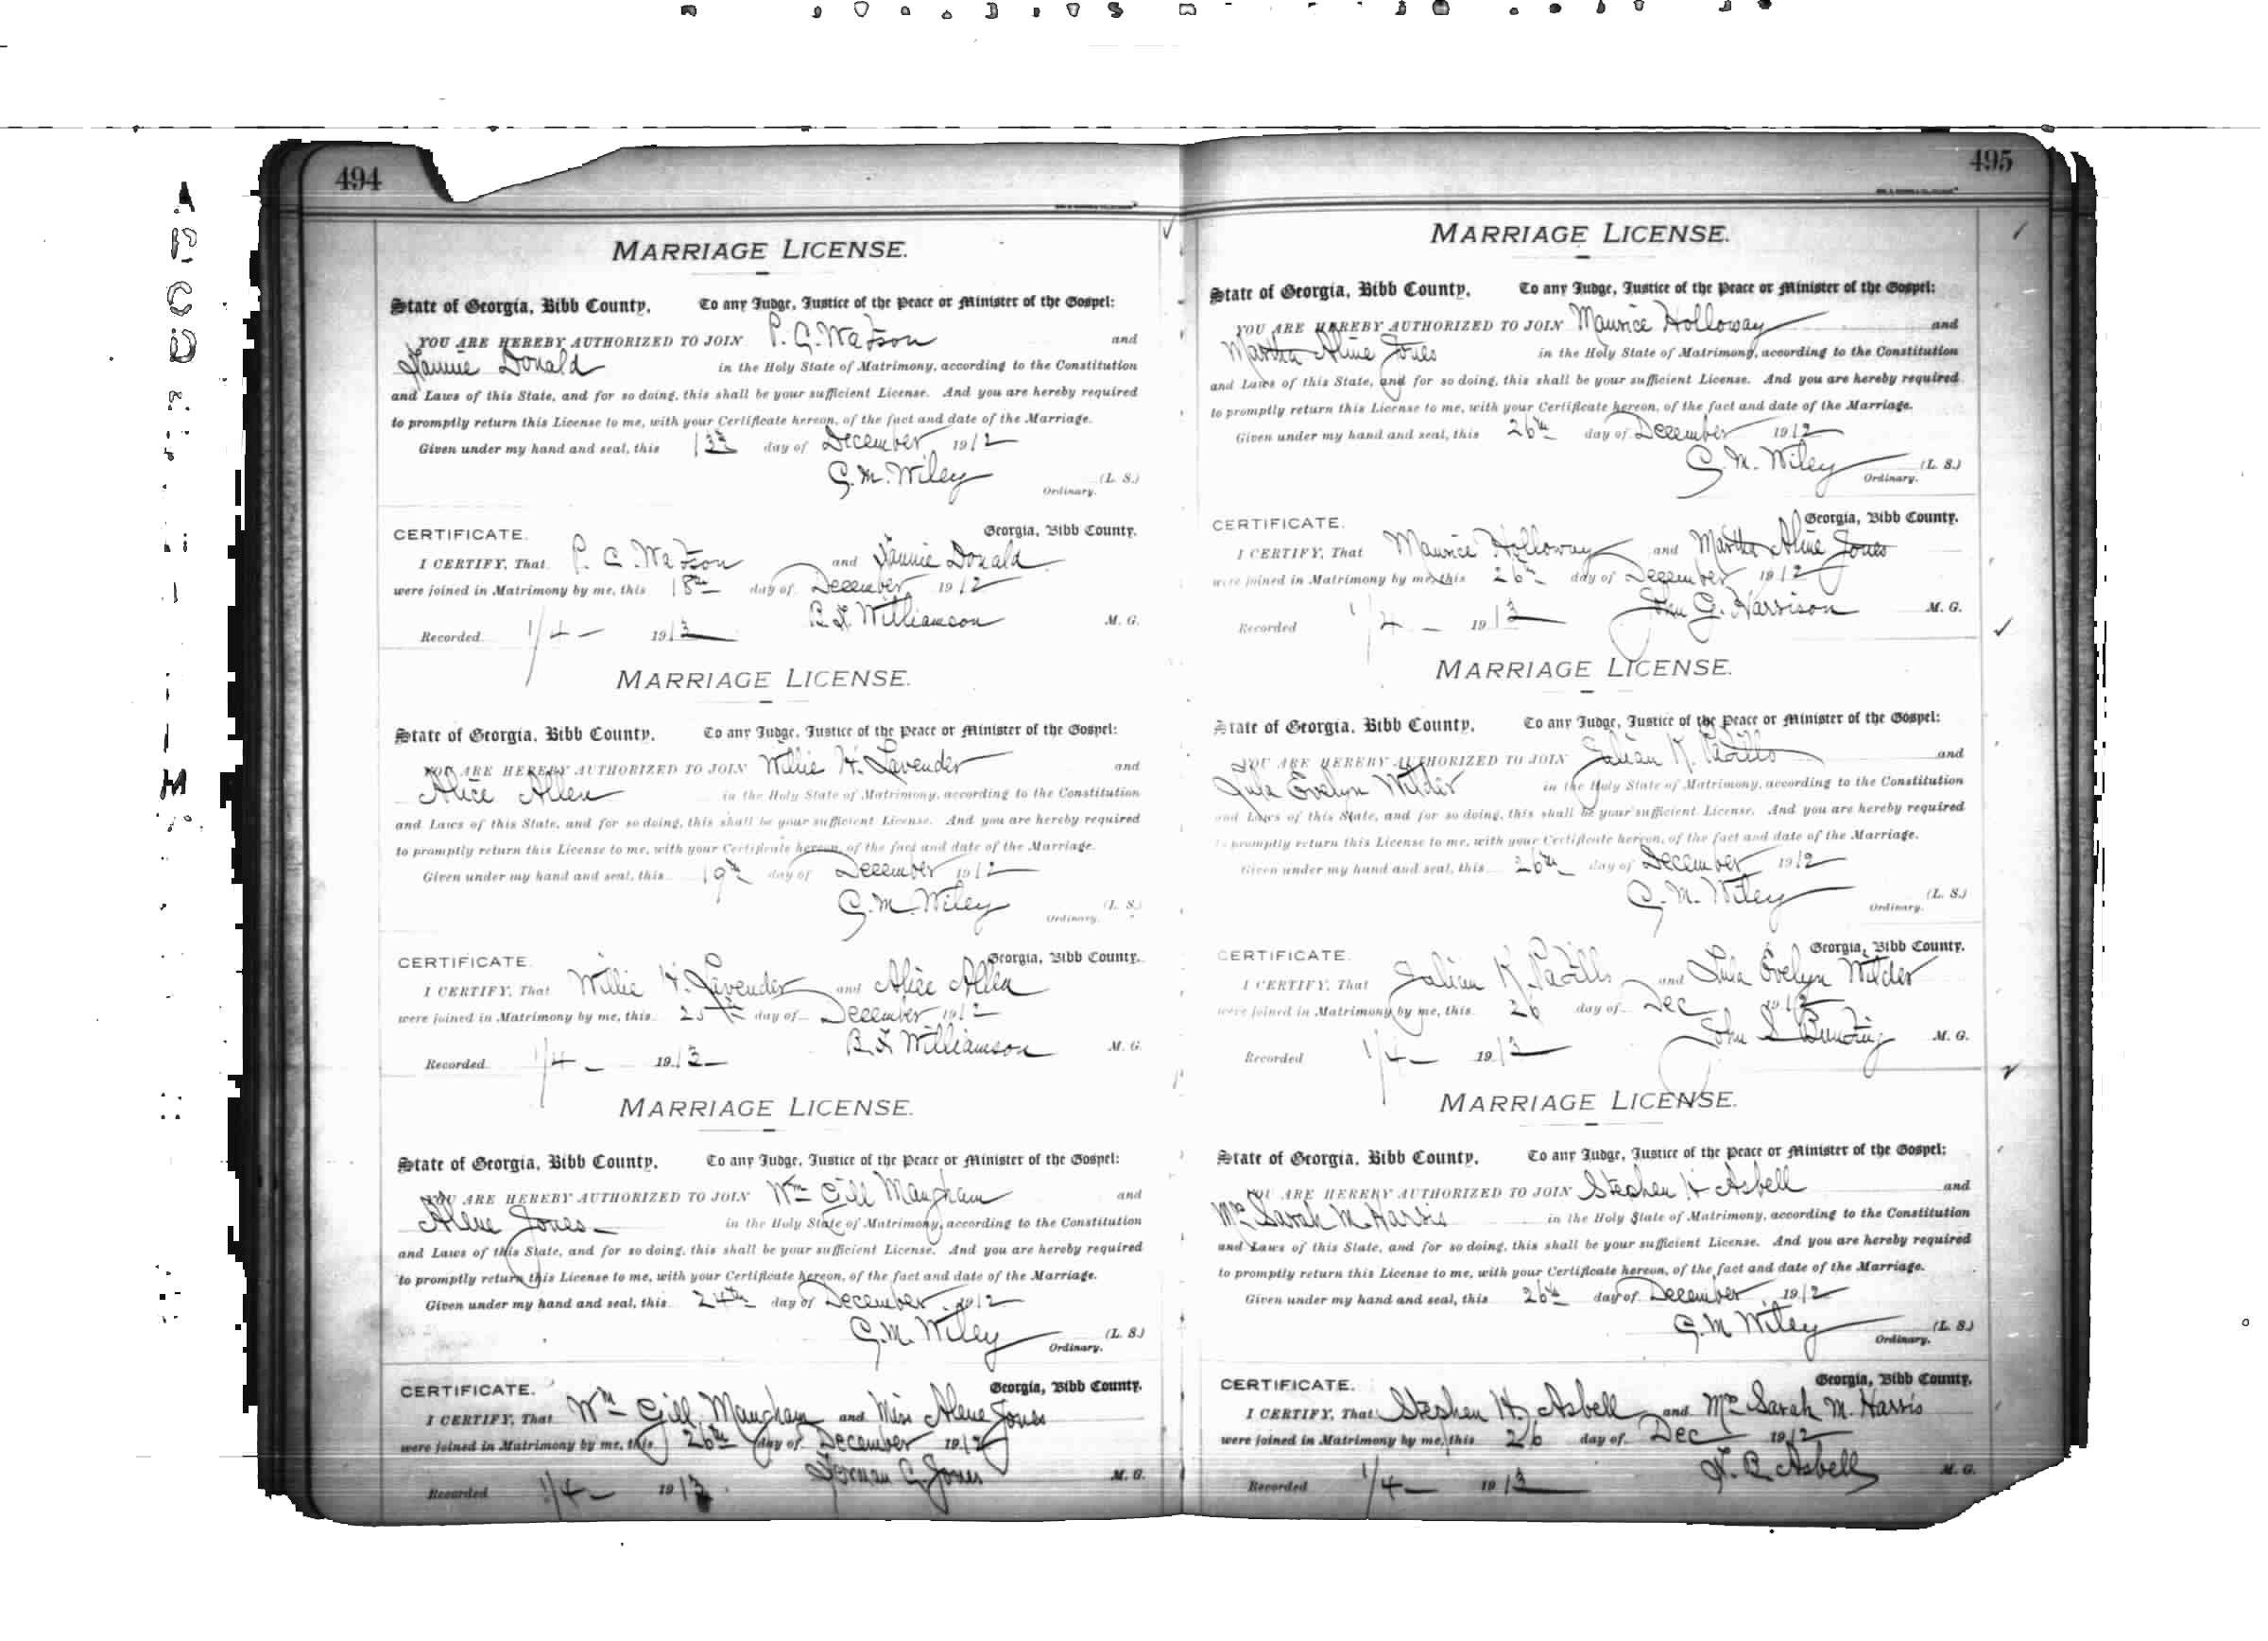 494
MARRIAGE LICENSE.
State of Georgia, Bibb County. To any Judge, Justice of the Peace or Minister of the Gospel:
YOU ARE HEREBY AUTHORIZED TO JOIN P. G. Watson and
Donald in the Holy State of Matrimony, according to the Constitution
and Laws of this State, and for so doing, this shall be your sufficient License. And you are hereby required
to promptly return this License to me, with your Certificate hereon, of the fact and date of the Marriage.
Given under my hand and seal, this day of December 1912
G. M. Wiley (L. S.)
Ordinary.
CERTIFICATE. Georgia, Bibb County.
I CERTIFY, That P. G. Watson and Donald
were joined in Matrimony by me, this 18th day of December 1912
Williamson M. G.
Recorded 1/4 - 1913
MARRIAGE LICENSE.
State of Georgia, Bibb County. To any Judge, Justice of the Peace or Minister of the Gospel:
YOU ARE HEREBY AUTHORIZED TO JOIN Willie H. Lavender and
Alice Allen in the Holy State of Matrimony, according to the Constitution
and Laws of this State, and for so doing, this shall be your sufficient License. And you are hereby required
to promptly return this License to me, with your Certificate hereon, of the fact and date of the Marriage.
Given under my hand and seal, this 19th day of December 1912
G. M. Wiley (L. S.)
Ordinary.
CERTIFICATE. Georgia, Bibb County.
I CERTIFY, That Willie H. Lavender and Alice Allen
were joined in Matrimony by me, this 25th day of December 1912
Williamson M. G.
Recorded 1/4 - 1913
MARRIAGE LICENSE.
State of Georgia, Bibb County. To any Judge, Justice of the Peace or Minister of the Gospel:
YOU ARE HEREBY AUTHORIZED TO JOIN Wm Gill Maugham and
Alene Jones in the Holy State of Matrimony, according to the Constitution
and Laws of this State, and for so doing, this shall be your sufficient License. And you are hereby required
to promptly return this License to me, with your Certificate hereon, of the fact and date of the Marriage.
Given under my hand and seal, this 24th day of December 1912
G. M. Wiley (L. S.)
Ordinary.
CERTIFICATE. Georgia, Bibb County.
I CERTIFY, That Wm Gill Maugham and Miss Alene Jones
were joined in Matrimony by me, this 26th day of December 1912
Jones M. G.
Recorded 1/4 - 1913
495
MARRIAGE LICENSE.
State of Georgia, Bibb County. To any Judge, Justice of the Peace or Minister of the Gospel:
YOU ARE HEREBY AUTHORIZED TO JOIN Maurice Holloway and
Martha Aline Jones in the Holy State of Matrimony, according to the Constitution
and Laws of this State, and for so doing, this shall be your sufficient License. And you are hereby required
to promptly return this License to me, with your Certificate hereon, of the fact and date of the Marriage.
Given under my hand and seal, this 26th day of December 1912
G. M. Wiley (L. S.)
Ordinary.
CERTIFICATE. Georgia, Bibb County.
I CERTIFY, That Maurice Holloway and Martha Aline Jones
were joined in Matrimony by me, this 26th day of December 1912
John G. Harrison M. G.
Recorded 1/4 - 1913
MARRIAGE LICENSE.
State of Georgia, Bibb County. To any Judge, Justice of the Peace or Minister of the Gospel:
YOU ARE HEREBY AUTHORIZED TO JOIN Julian K. and
Lula Evelyn Wilder in the Holy State of Matrimony, according to the Constitution
and Laws of this State, and for so doing, this shall be your sufficient License. And you are hereby required
to promptly return this License to me, with your Certificate hereon, of the fact and date of the Marriage.
Given under my hand and seal, this 26th day of December 1912
G. M. Wiley (L. S.)
Ordinary.
CERTIFICATE. Georgia, Bibb County.
I CERTIFY, That Julian K. and Lula Evelyn Wilder
were joined in Matrimony by me, this 26 day of Dec 1912
John S Bunting M. G.
Recorded 1/4 - 1913
MARRIAGE LICENSE.
State of Georgia, Bibb County. To any Judge, Justice of the Peace or Minister of the Gospel:
YOU ARE HEREBY AUTHORIZED TO JOIN Stephen H Asbell and
Mrs Sarah M. Harris in the Holy State of Matrimony, according to the Constitution
and Laws of this State, and for so doing, this shall be your sufficient License. And you are hereby required
to promptly return this License to me, with your Certificate hereon, of the fact and date of the Marriage.
Given under my hand and seal, this 26th day of December 1912
G. M Wiley (L. S.)
Ordinary.
CERTIFICATE. Georgia, Bibb County.
I CERTIFY, That Stephen H. Asbell and Mrs Sarah M. Harris
were joined in Matrimony by me, this 26 day of Dec 1912
Asbell M. G.
Recorded 1/4 - 1913